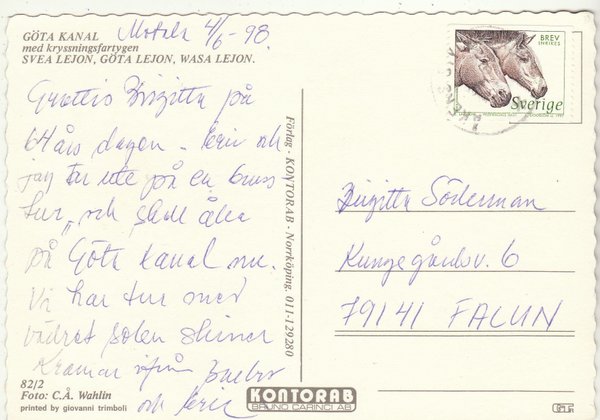 GÖTA KANAL
med kryssningsfartygen
SVEA LEJON, GÖTA LEJON, WASA LEJON.
Motala 4/6-98
Grattis Birgitta på
64 års dagen - Eric och
jag är ute på en buss
tur, och skall åka
på Göta kanal nu.
Vi har tur med
vädret solen skiner
Kramar ifrån
och Eric
82/2
Foto: C.Å. Wahlin
printed by giovanni trimboli
Förlag - KONTORAB - Norrköping. 011-129280
KONTORAB
BRUNO CARINCI AB
BREV
INRIKES
Sverige
Birgitta Söderman
Kungsgårdsv. 6
79141 FALUN